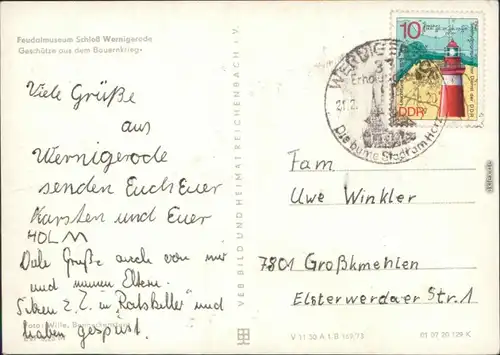 Feudalmuseum Schloß Wernigerode
Geschütze aus dem Bauernkrieg
Viele Grüße
aus
Wernigerode
senden Euch Euer
Karsten und Euer
HOLM
Grüße auch von mir
und meinen Eltern.
Sitzen z. Z. im "Ratskeller" und
haben gespeist.
Foto: Wille,
VEB BILD UND HEIMAT REICHENBACH i. V.
WERNIGERODE
Die bunte Stadt am Harz
10
DDR
Fam
Uwe Winkler
7801 Großkmehlen
Elsterwerdaer Str. 1
V 11 50 A 1 B 149/73
01 07 20 129 K